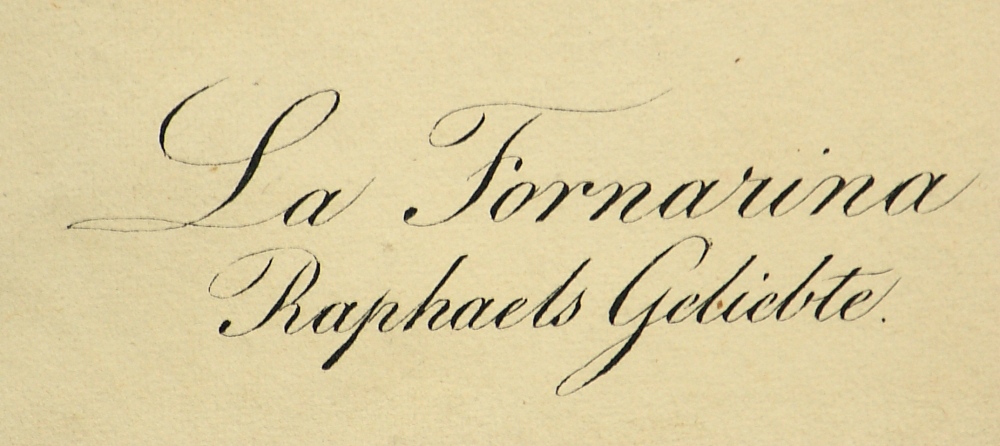 La Fornarina
Raphaels Geliebte.